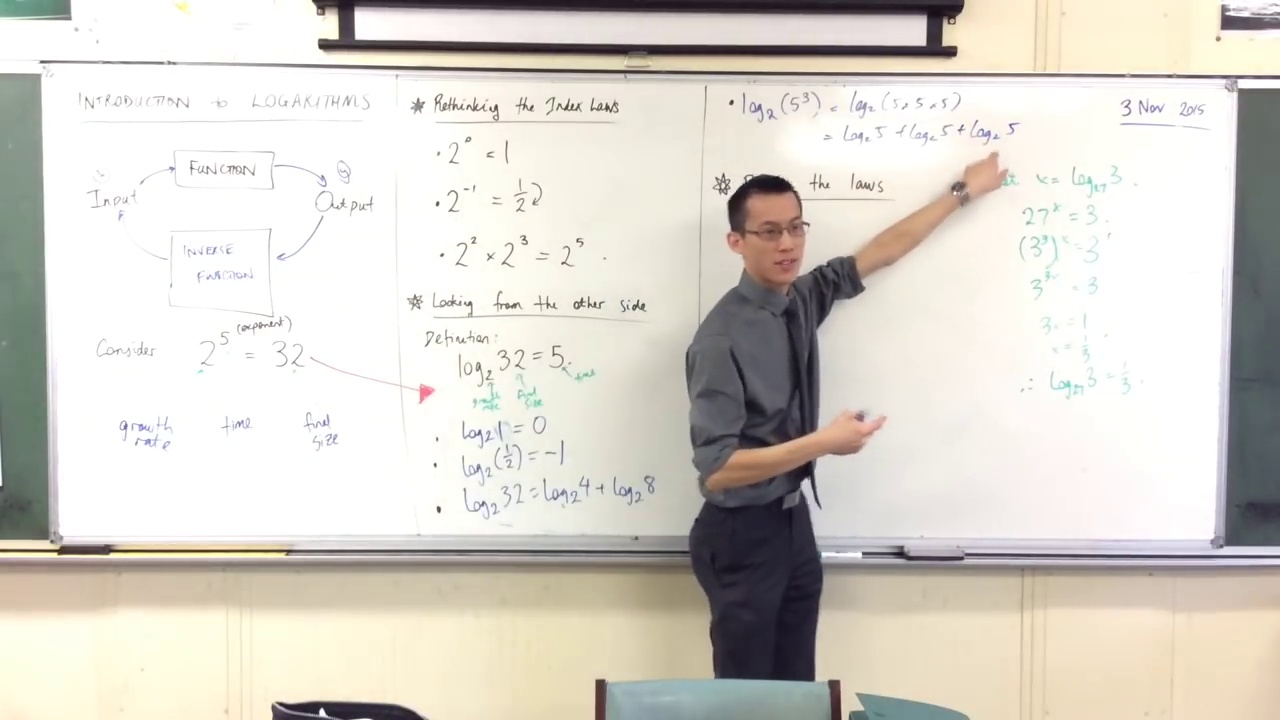 INTRODUCTION to LOGARITHMS
FUNCTION
Input
Output
INVERSE
FUNCTION
Consider
2⁵ = 32
(exponent)
growth
rate
time
final
size
* Rethinking the Index Laws
· 2⁰ = 1
· 2⁻¹ = 1/2
· 2² × 2³ = 2⁵ .
* Looking from the other side
Definition:
log₂ 32 = 5.
growth
rate
final
size
time
· log₂ 1 = 0
· log₂ (1/2) = -1
· log₂ 32 = log₂ 4 + log₂ 8
· log₂ (5³) = log₂ (5 × 5 × 5)
= log₂ 5 + log₂ 5 + log₂ 5
* the laws
3 Nov 2015
x = log₂₇ 3 .
27ˣ = 3 .
(3³)ˣ = 3¹
3³ˣ = 3
3x = 1
x = 1/3 .
∴ log₂₇ 3 = 1/3 .